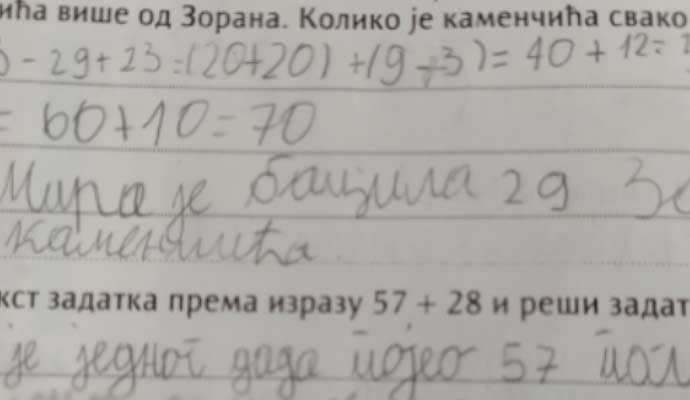 ића више од Зорана. Колико је каменчића свако
- 29+23=(20+20)+(9+3)=40+12=
= 60+10=70
Мира је бацила 29
каменчића.
кст задатка према изразу 57 + 28 и реши задат
је једног дада појео 57